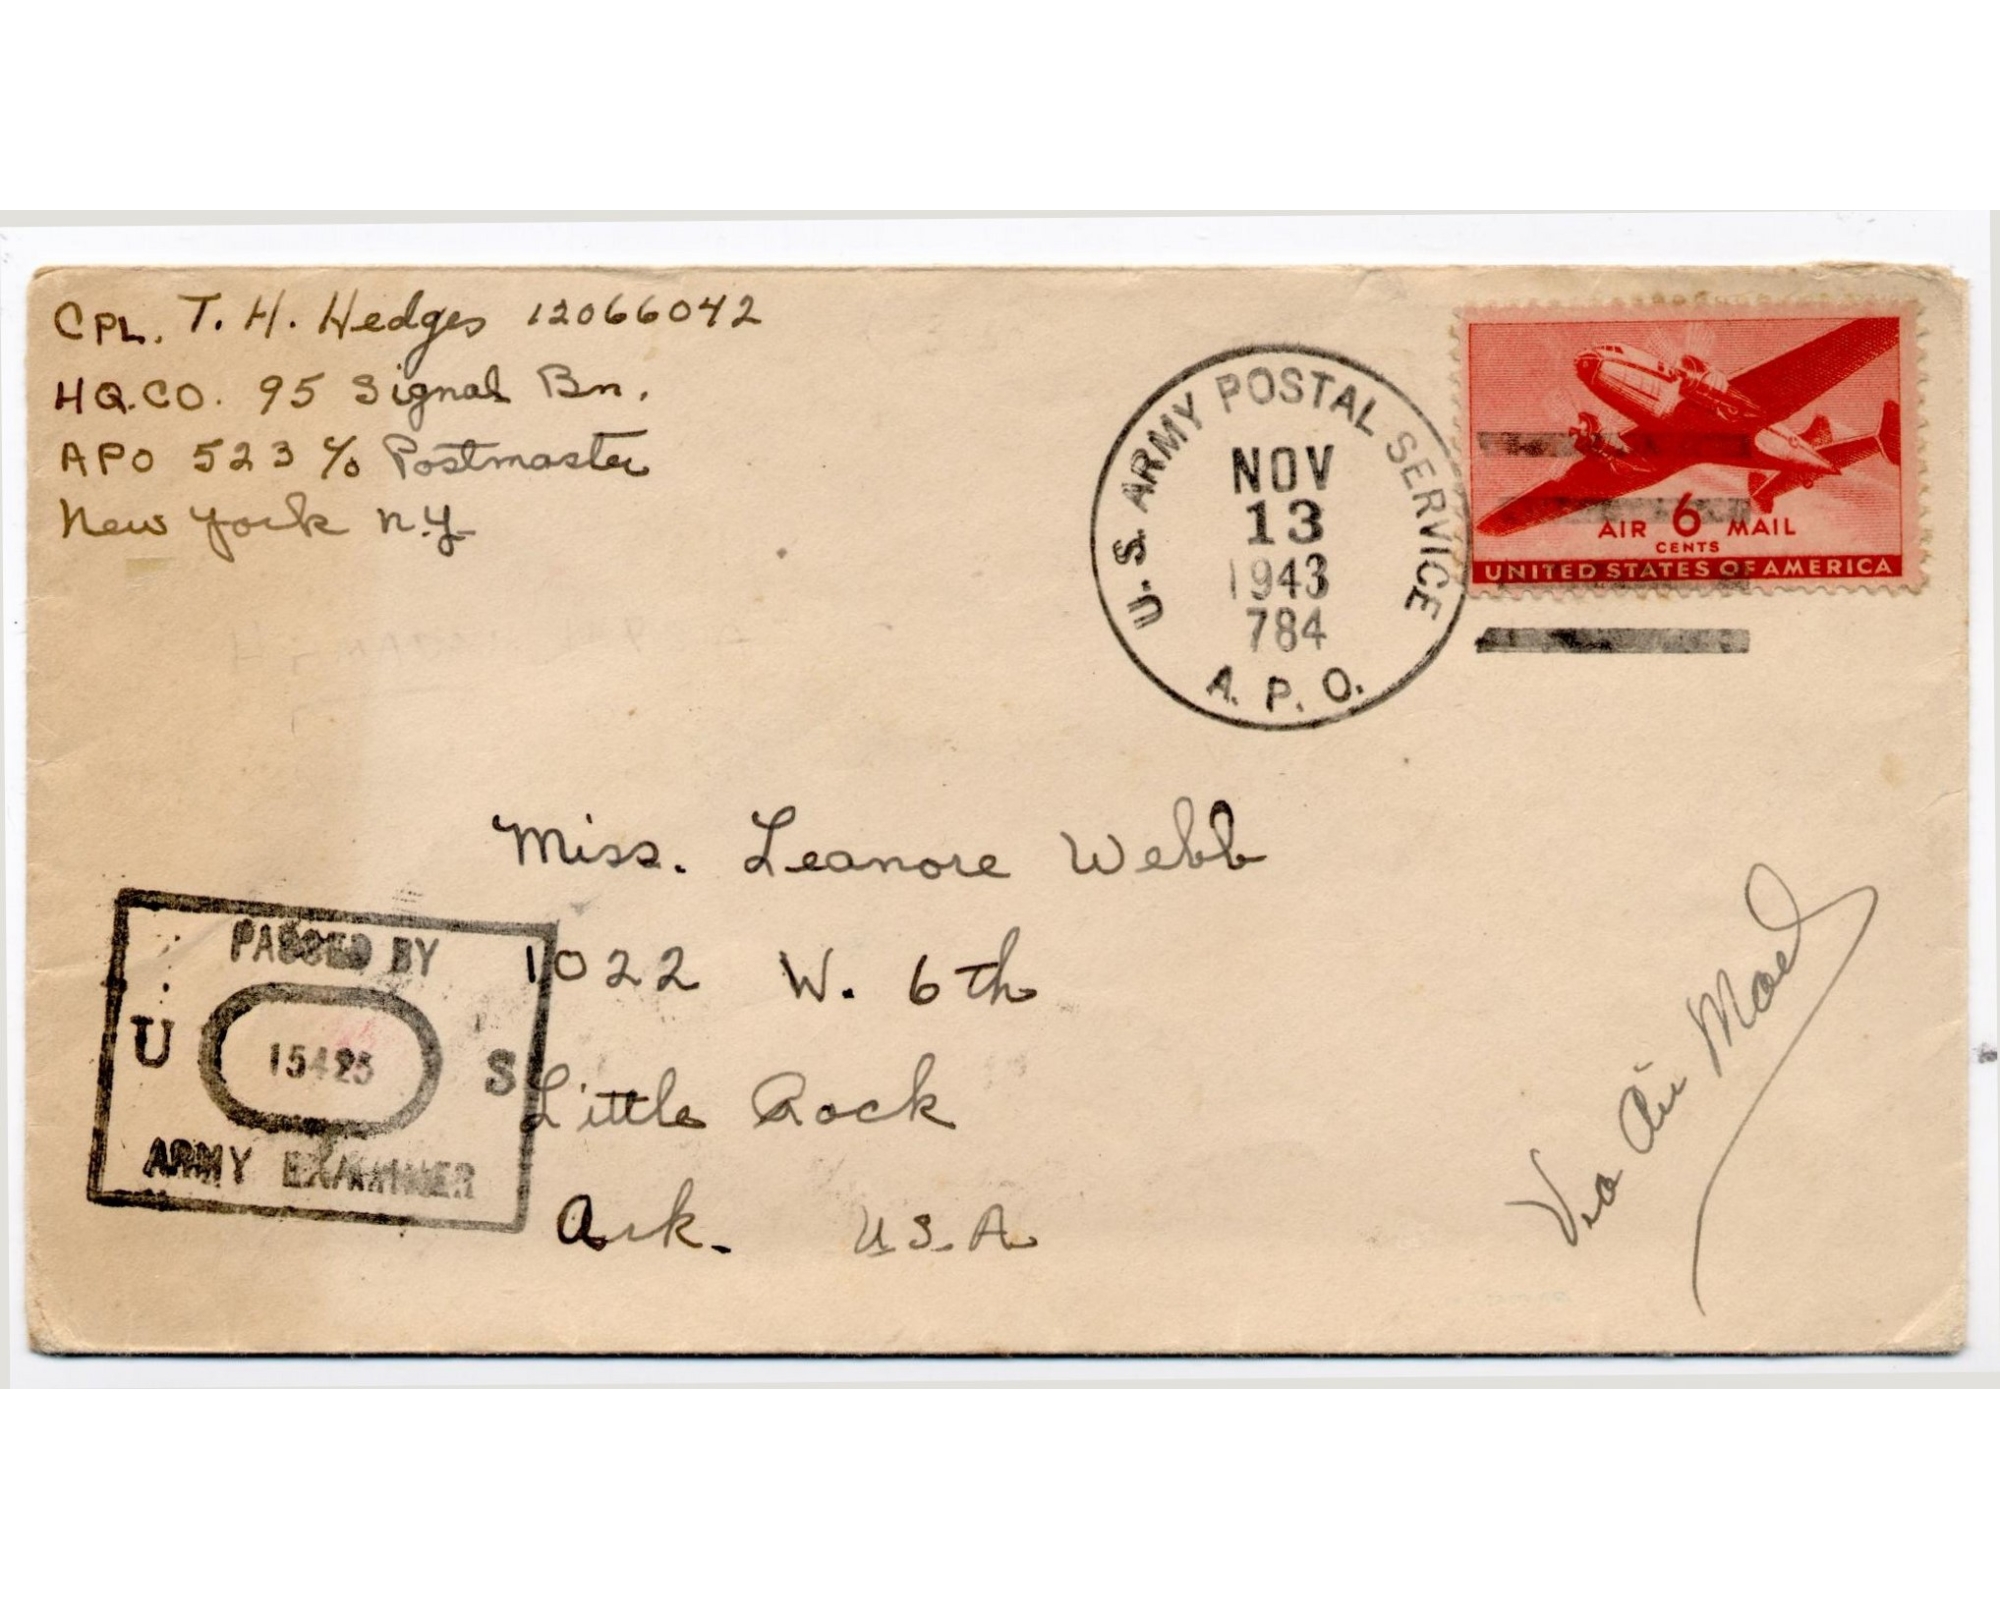 CPL. T. H. Hedges 12066042
HQ.CO. 95 Signal Bn.
APO 523 c/o Postmaster
New York N.Y.
U.S. ARMY POSTAL SERVICE
NOV
13
1943
784
A.P.O.
AIR 6 MAIL
CENTS
UNITED STATES OF AMERICA
Miss. Leanore Webb
1022 W. 6th
Little Rock
Ark. U.S.A.
PASSED BY
U S
15425
ARMY EXAMINER
Via Air Mail